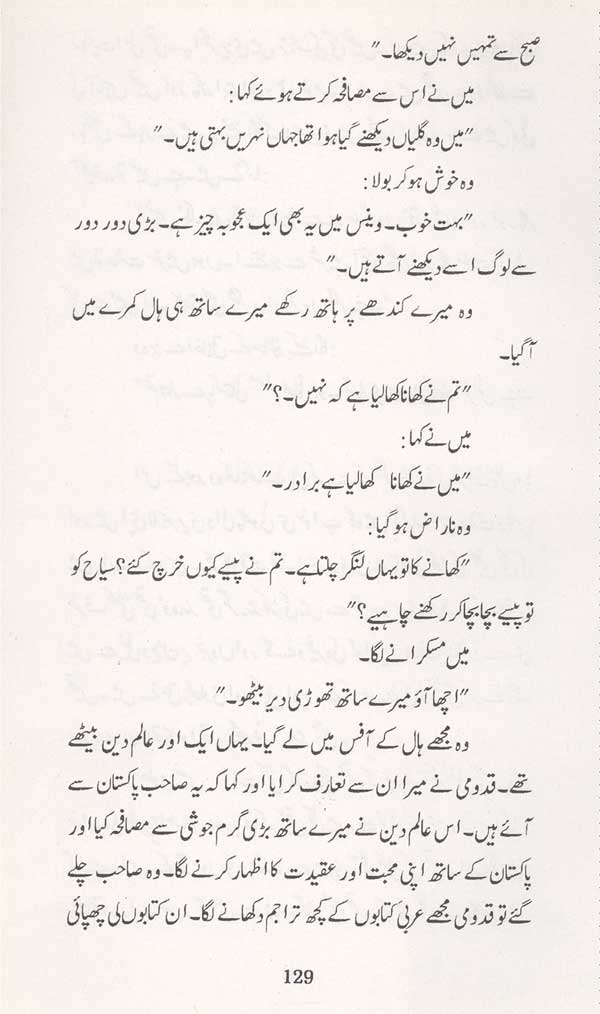 صبح سے تمہیں نہیں دیکھا۔"
میں نے اس سے مصافحہ کرتے ہوئے کہا:
"میں وہ گلیاں دیکھنے گیا ہوا تھا جہاں نہریں بہتی ہیں۔"
وہ خوش ہو کر بولا:
"بہت خوب۔ وینس میں یہ بھی ایک عجوبہ چیز ہے۔ بڑی دور دور
سے لوگ اسے دیکھنے آتے ہیں۔"
وہ میرے کندھے پر ہاتھ رکھے میرے ساتھ ہی ہال کمرے میں
آگیا۔
"تم نے کھانا کھا لیا ہے کہ نہیں۔؟"
میں نے کہا:
"میں نے کھانا کھا لیا ہے برادر۔"
وہ ناراض ہو گیا:
"کھانے کا تو یہاں لنگر چلتا ہے۔ تم نے پیسے کیوں خرچ کئے؟ سیاح کو
تو پیسے بچا بچا کر رکھنے چاہیے؟"
میں مسکرانے لگا۔
"اچھا آؤ میرے ساتھ تھوڑی دیر بیٹھو۔"
وہ مجھے ہال کے آفس میں لے گیا۔ یہاں ایک اور عالم دین بیٹھے
تھے۔ قدومی نے میرا ان سے تعارف کرایا اور کہا کہ یہ صاحب پاکستان سے
آئے ہیں۔ اس عالم دین نے میرے ساتھ بڑی گرم جوشی سے مصافحہ کیا اور
پاکستان کے ساتھ اپنی محبت اور عقیدت کا اظہار کرنے لگا۔ وہ صاحب چلے
گئے تو قدومی مجھے عربی کتابوں کے کچھ تراجم دکھانے لگا۔ ان کتابوں لی چھپائی
129